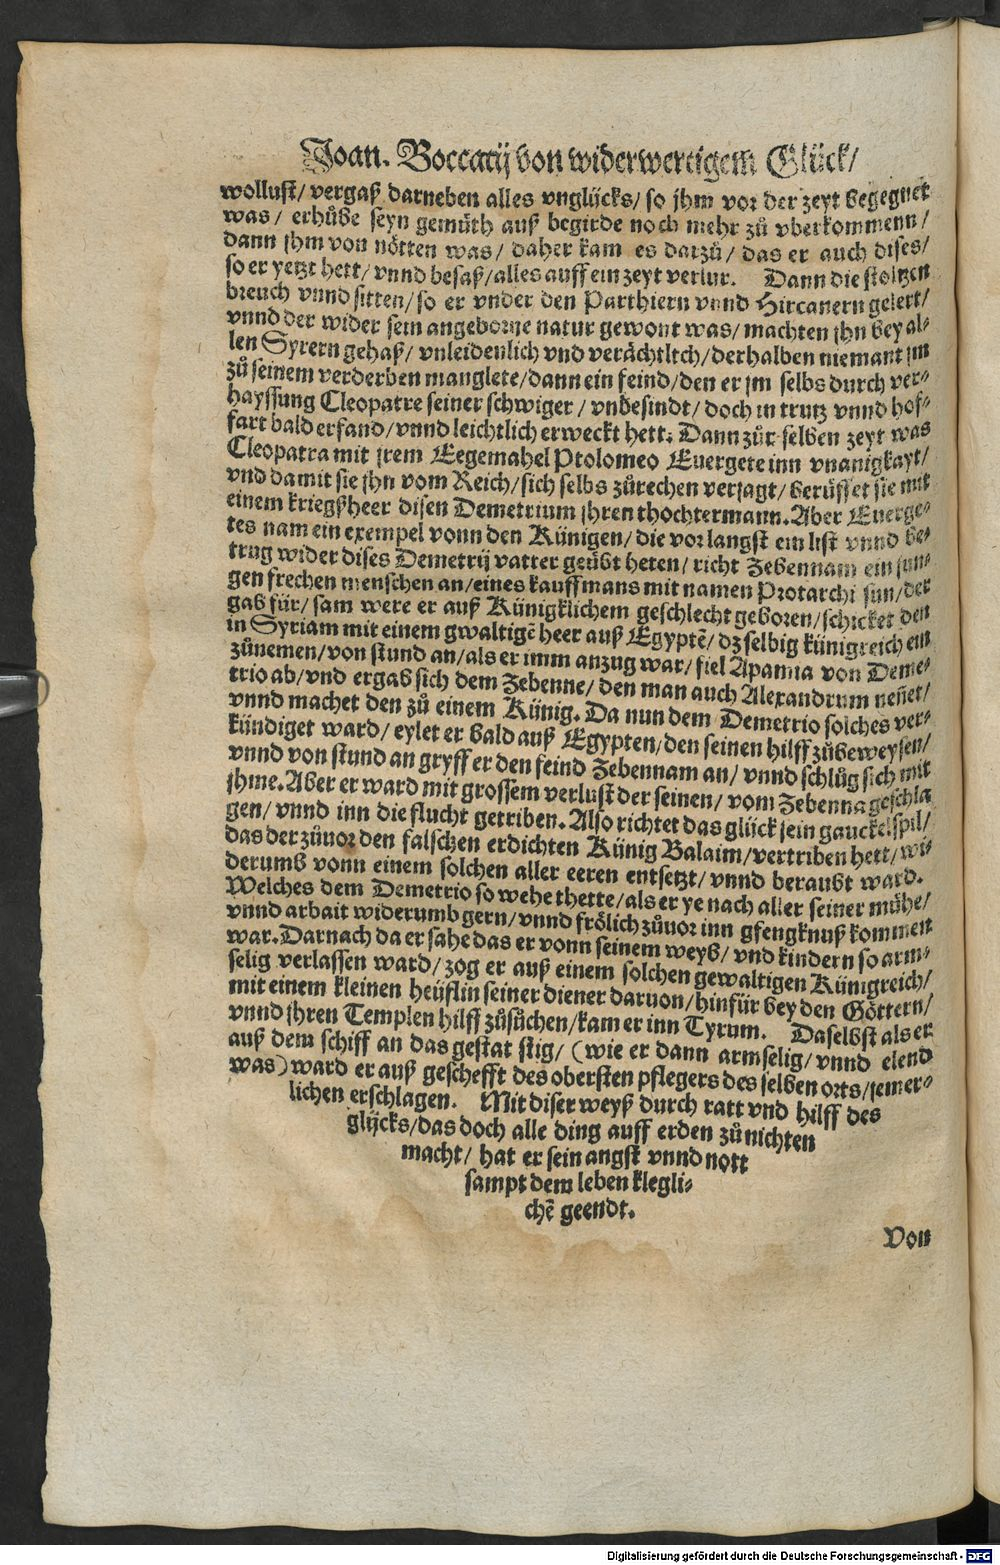 Joan. Boccatij von widerwertigem Glück/
wollust/ vergaß darneben alles vnglücks/ so jhm vor der zeyt begegnet
was/ erhůbe seyn gemüth auß begirde noch mehr zů vberkommenn/
dann jhm von nötten was/ daher kam es darzů/ das er auch dises/
so er yetzt hett/ vnnd besaß/ alles auff ein zeyt verlur. Dann die stoltzen
breuch vnnd sitten/ so er vnder den Parthiern vnnd Hircanern gelert/
vnnd der wider sein angeborne natur gewont was/ machten jhn bey al-
len Syrern gehaß/ vnleidenlich vnd verächtltch/ derhalben niemant jm
zů seinem verderben manglete/ dann ein feind/ den er jm selbs durch ver-
hayssung Cleopatre seiner schwiger/ vnbesindt/ doch in trutz vnnd hof-
fart bald erfand/ vnnd leichtlich erweckt hett. Dann zůr selben zeyt was
Cleopatra mit jrem Eegemahel Ptolomeo Euergete inn vnanigkayt/
vnd damit sie jhn vom Reich/ sich selbs zůrechen verjagt/ berüffet sie mit
einem kriegßheer disen Demetrium jhren thochtermann. Aber Euerge-
tes nam ein exempel vonn den Künigen/ die vor langst ein list vnnd be-
trug wider dises Demetrij vatter geübt heten/ richt Zebennam ein jun-
gen frechen menschen an/ eines kauffmans mit namen Protarchi sun/ der
gab für/ sam were er auß Künigklichem geschlecht geboren/ schicket den
in Syriam mit einem gwaltigē heer auß Egyptē/ dz selbig künigreich ein
zůnemen/ von stund an/ als er imm anzug war/ fiel Apamia von Deme-
trio ab/ vnd ergab sich dem Zebenne/ den man auch Alexandrum neñet/
vnnd machet den zů einem Künig. Da nun dem Demetrio solches ver-
kündiget ward/ eylet er bald auß Egypten/ den seinen hilff zůbeweysen/
vnnd von stund an gryff er den feind Zebennam an/ vnnd schlůg sich mit
jhme. Aber er ward mit grossem verlust der seinen/ vom Zebenna geschla
gen/ vnnd inn die flucht getriben. Also richtet das glück sein gauckelspil/
das der zůuor den falschen erdichten Künig Balaim/ vertriben hett/ wi-
derumb vonn einem solchen aller eeren entsetzt/ vnnd beraubt ward.
Welches dem Demetrio so wehe thette/ als er ye nach aller seiner mühe/
vnnd arbait widerumb gern/ vnnd frölich zůuor inn gfengknuß kommen
war. Darnach da er sahe das er vonn seinem weyb/ vnd kindern so arm-
selig verlassen ward/ zog er auß einem solchen gewaltigen Künigreich/
mit einem kleinen heüflin seiner diener daruon/ hinfür bey den Göttern/
vnnd jhren Templen hilff zůsůchen/ kam er inn Tyrum. Daselbst als er
auß dem schiff an das gestat stig/ (wie er dann armselig/ vnnd elend
was) ward er auß geschefft des obersten pflegers des selben orts/ jemer-
lichen erschlagen. Mit diser weyß durch ratt vnd hilff des
glücks/ das doch alle ding auff erden zů nichten
macht/ hat er sein angst vnnd nott
sampt dem leben klegli-
chē geendt.
Von
Digitalisierung gefördert durch die Deutsche Forschungsgemeinschaft - DFG